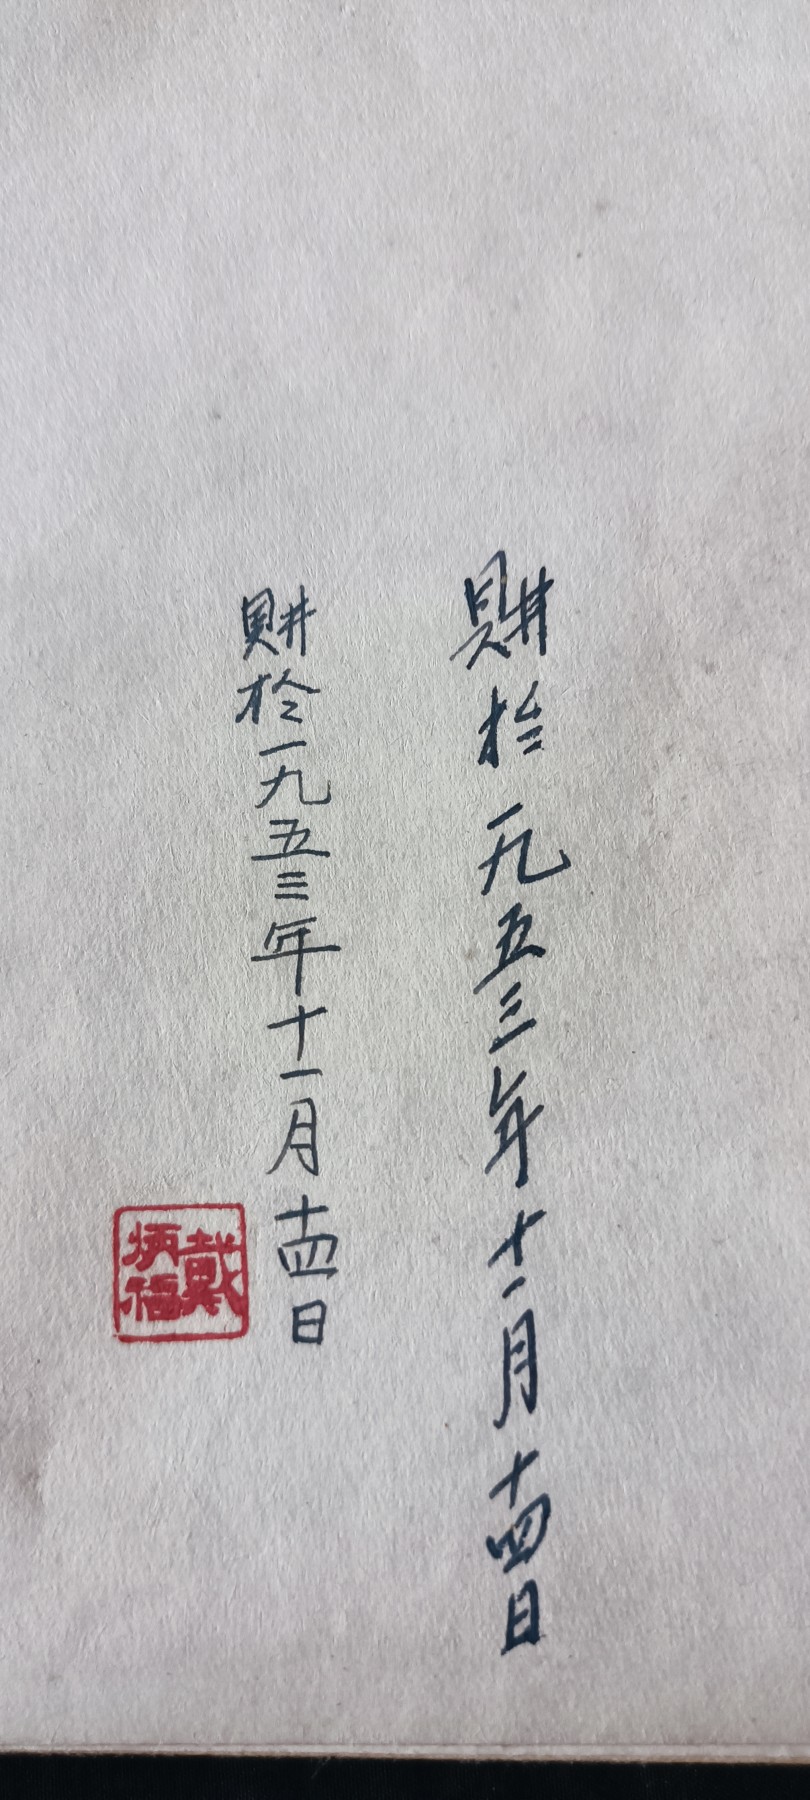 購於一九五三年十一月十四日
購於一九五三年十一月十四日
戴炳福